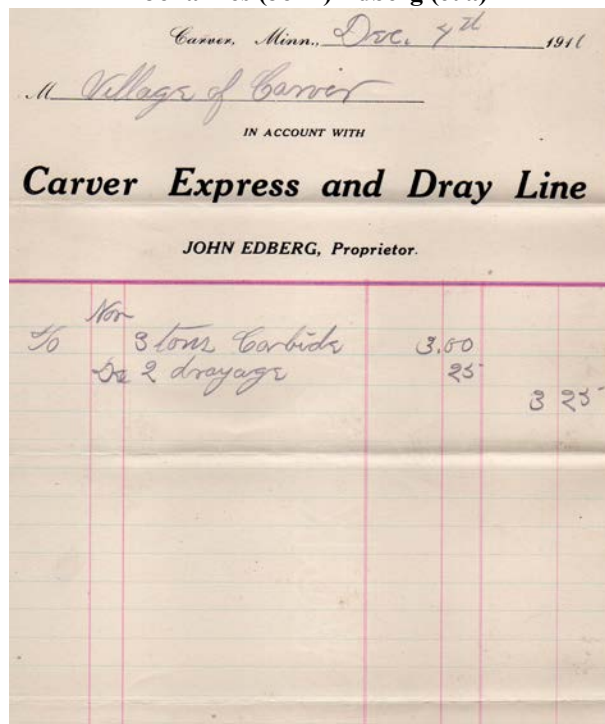 Carver, Minn., Dec. 7th 1911
M Village of Carver
IN ACCOUNT WITH
Carver Express and Dray Line
JOHN EDBERG, Proprietor.
Nov
To 3 tons Carbide 3.00
De 2 drayage 25
3 25